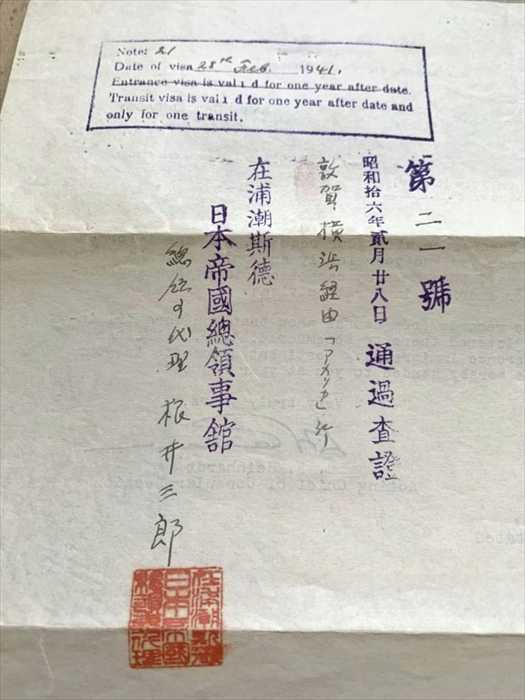 Note: 21
Date of visa 28th Feb. 1941.
Entrance visa is valid for one year after date.
Transit visa is valid for one year after date and
only for one transit.
第二一號
昭和拾六年貳月廿八日 通過査證
敦賀橫浜経由「アメリカ」行
在浦潮斯德
日本帝國總領事館
總領事代理 根井三郎